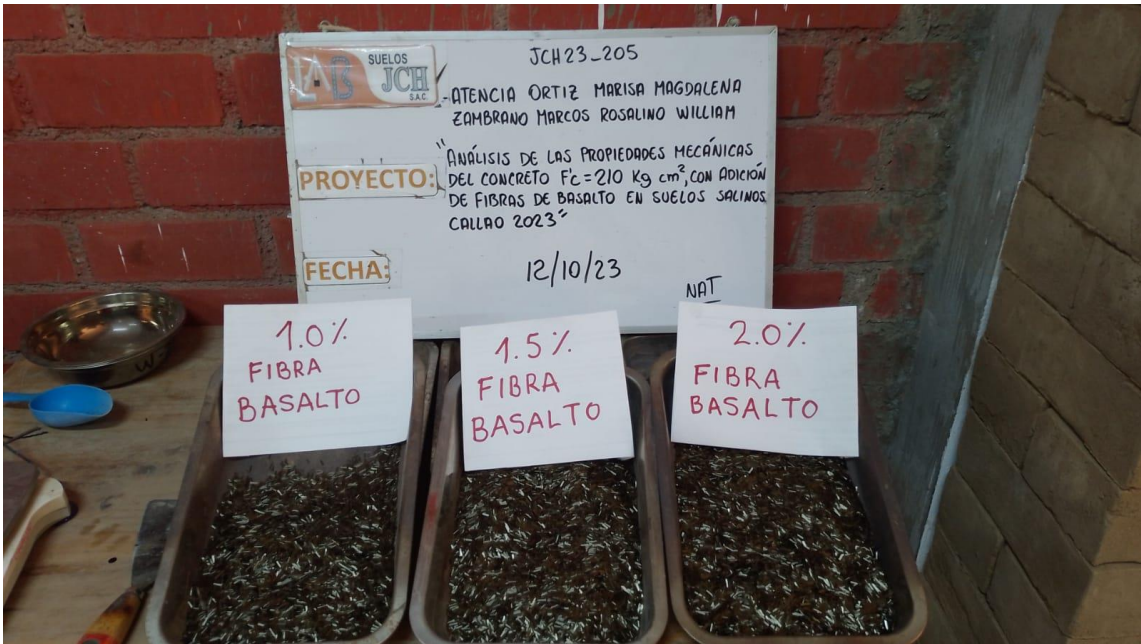 JCH23_205
LAB SUELOS JCH S.A.C.
-ATENCIA ORTIZ MARISA MAGDALENA
ZAMBRANO MARCOS ROSALINO WILLIAM
PROYECTO:
"ANÁLISIS DE LAS PROPIEDADES MECÁNICAS
DEL CONCRETO F'c=210 Kg cm², CON ADICIÓN
DE FIBRAS DE BASALTO EN SUELOS SALINOS,
CALLAO 2023"
FECHA:
12/10/23
NAT
1.0%
FIBRA
BASALTO
1.5%
FIBRA
BASALTO
2.0%
FIBRA
BASALTO